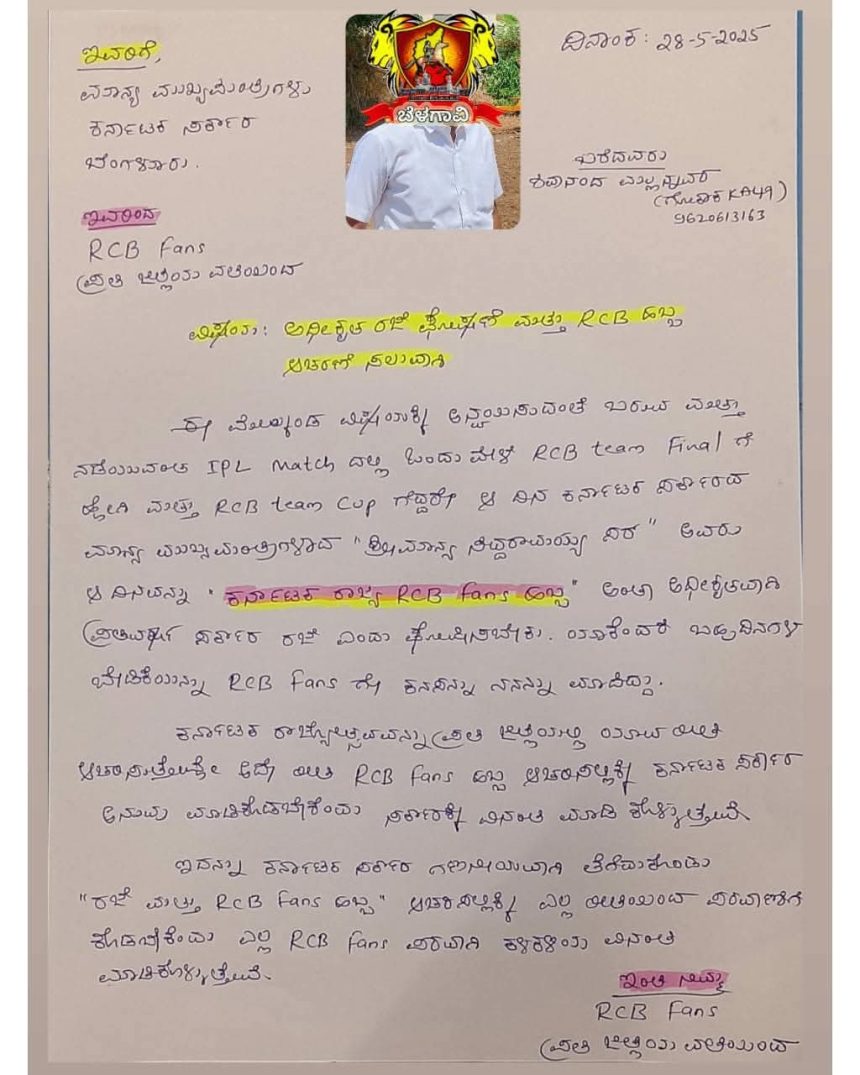 ಇವರಿಗೆ,
ಮಾನ್ಯ ಮುಖ್ಯಮಂತ್ರಿಗಳು
ಕರ್ನಾಟಕ ಸರ್ಕಾರ
ಬೆಂಗಳೂರು.
ಬೆಳಗಾವಿ
ದಿನಾಂಕ: 28-5-2025
ಬರೆದವರು
ಶಿವಾನಂದ ಮಲ್ಲನ್ನವರ
(ಗೋಕಾಕ KA49)
9620613163
ಇವರಿಂದ
RCB Fans
ಪ್ರತಿ ಜಿಲ್ಲೆಯ ವತಿಯಿಂದ
ವಿಷಯ: ಅಧೀಕೃತ ರಜೆ ಘೋಷಣೆ ಮತ್ತು RCB ಹಬ್ಬ
ಆಚರಣೆ ಸಲುವಾಗಿ
ಈ ಮೇಲ್ಕಂಡ ವಿಷಯಕ್ಕೆ ಅನ್ವಯಿಸುವಂತೆ ಬರುವ ಮತ್ತು
ನಡೆಯುವಂತ IPL Match ದಲ್ಲಿ ಒಂದು ವೇಳೆ RCB team Final ಗೆ
ಹೋಗಿ ಮತ್ತು RCB team Cup ಗೆದ್ದರೇ ಆ ದಿನ ಕರ್ನಾಟಕ ಸರ್ಕಾರದ
ಮಾನ್ಯ ಮುಖ್ಯಮಂತ್ರಿಗಳಾದ "ಶ್ರೀಮಾನ್ಯ ಸಿದ್ದರಾಮಯ್ಯ ಸರ" ಅವರು
ಆ ದಿನವನ್ನು "ಕರ್ನಾಟಕ ರಾಜ್ಯ RCB Fans ಹಬ್ಬ" ಅಂತಾ ಅಧೀಕೃತವಾಗಿ
ಪ್ರತಿವರ್ಷ ಸರ್ಕಾರ ರಜೆ ಎಂದು ಘೋಷಿಸಬೇಕು. ಯಾಕೆಂದರೆ ಬಹುದಿನಗಳ
ಬೇಡಿಕೆಯನ್ನು RCB Fans ಗೇ ಕನಸನ್ನು ನನಸನ್ನು ಮಾಡಿದ್ದು.
ಕರ್ನಾಟಕ ರಾಜ್ಯೋತ್ಸವವನ್ನು ಪ್ರತಿ ಜಿಲ್ಲೆಯಲ್ಲಿ ಯಾವ ರೀತಿ
ಆಚರಿಸುತ್ತೇವೋ ಅದೇ ರೀತಿ RCB Fans ಹಬ್ಬ ಆಚರಿಸಲಿಕ್ಕೆ ಕರ್ನಾಟಕ ಸರ್ಕಾರ
ಅನುವು ಮಾಡಿಕೊಡಬೇಕೆಂದು ಸರ್ಕಾರಕ್ಕೆ ವಿನಂತಿ ಮಾಡಿ ಕೊಳ್ಳುತ್ತೇವೆ.
ಇದನ್ನು ಕರ್ನಾಟಕ ಸರ್ಕಾರ ಗಣನೀಯವಾಗಿ ತೆಗೆದುಕೊಂಡು
"ರಜೆ ಮತ್ತು RCB Fans ಹಬ್ಬ" ಆಚರಿಸಲಿಕ್ಕೆ ಎಲ್ಲಾ ರೀತಿಯಿಂದ ಪರವಾಣಿಗೆ
ಕೊಡಬೇಕೆಂದು ಎಲ್ಲಾ RCB Fans ಪರವಾಗಿ ಕಳಕಳಿಯ ವಿನಂತಿ
ಮಾಡಿಕೊಳ್ಳುತ್ತೇವೆ.
ಇಂತಿ ನಿಮ್ಮ
RCB Fans
ಪ್ರತಿ ಜಿಲ್ಲೆಯ ವತಿಯಿಂದ